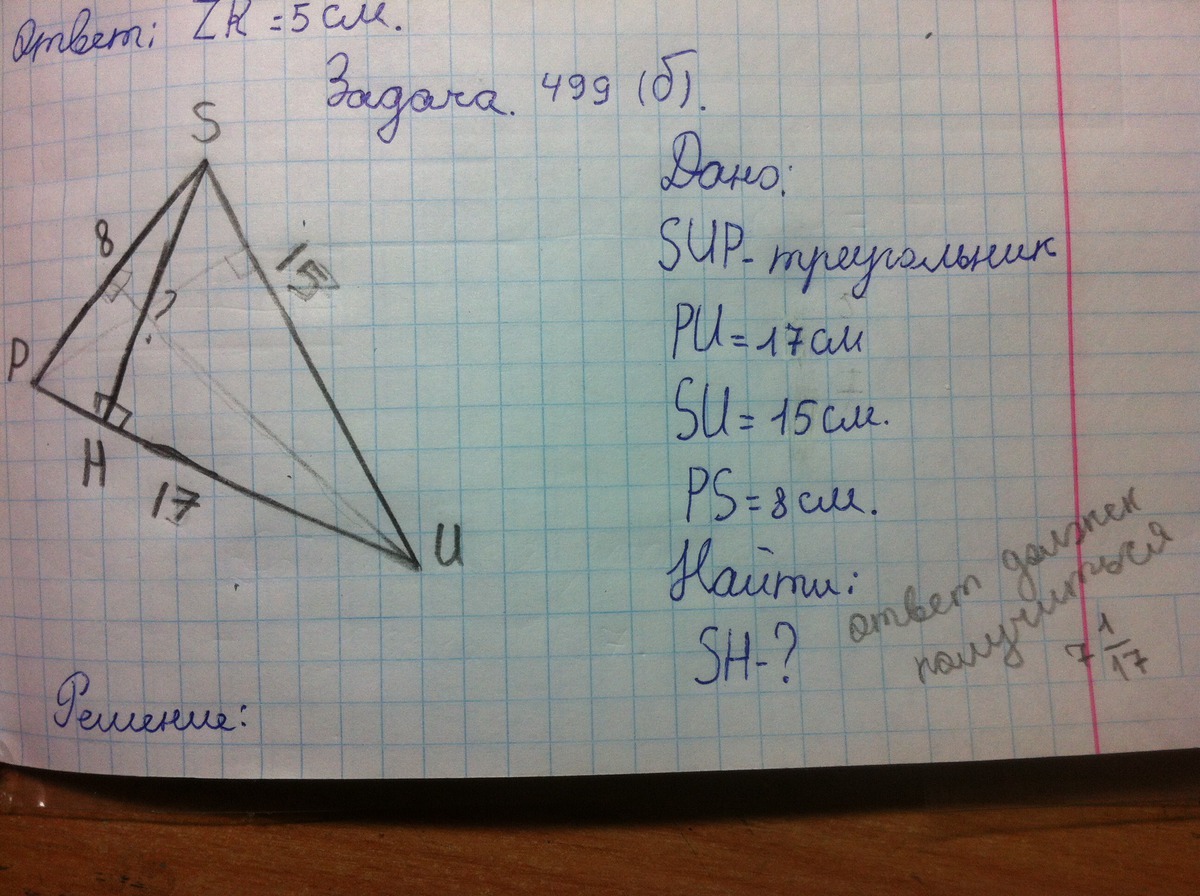 Ответ: ZK = 5 см.
Задача. 499 (б).
S
8
15
?
P
H
17
U
Дано:
SUP - треугольник
PU = 17 см
SU = 15 см.
PS = 8 см.
Найти:
SH - ?
ответ должен
получиться
7 1/17
Решение: